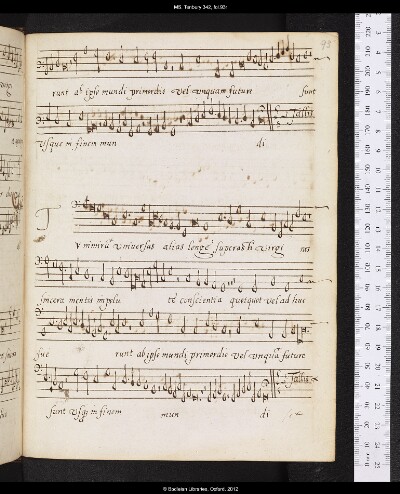 MS. Tenbury 342, fol.93r
93
runt ab ipso mundi primordio vel vnquam future sunt
Tallis
vsque in finem mun di
T
u nimirũ vniversas alias longè superasti virgi nes
sincera mentis
tē conscientia quotquot vel ad huc
fue runt ab ipso mundi primordio vel vnquã future
Tallis
sunt vsq; in finem mun di
© Bodleian Libraries, Oxford, 2012